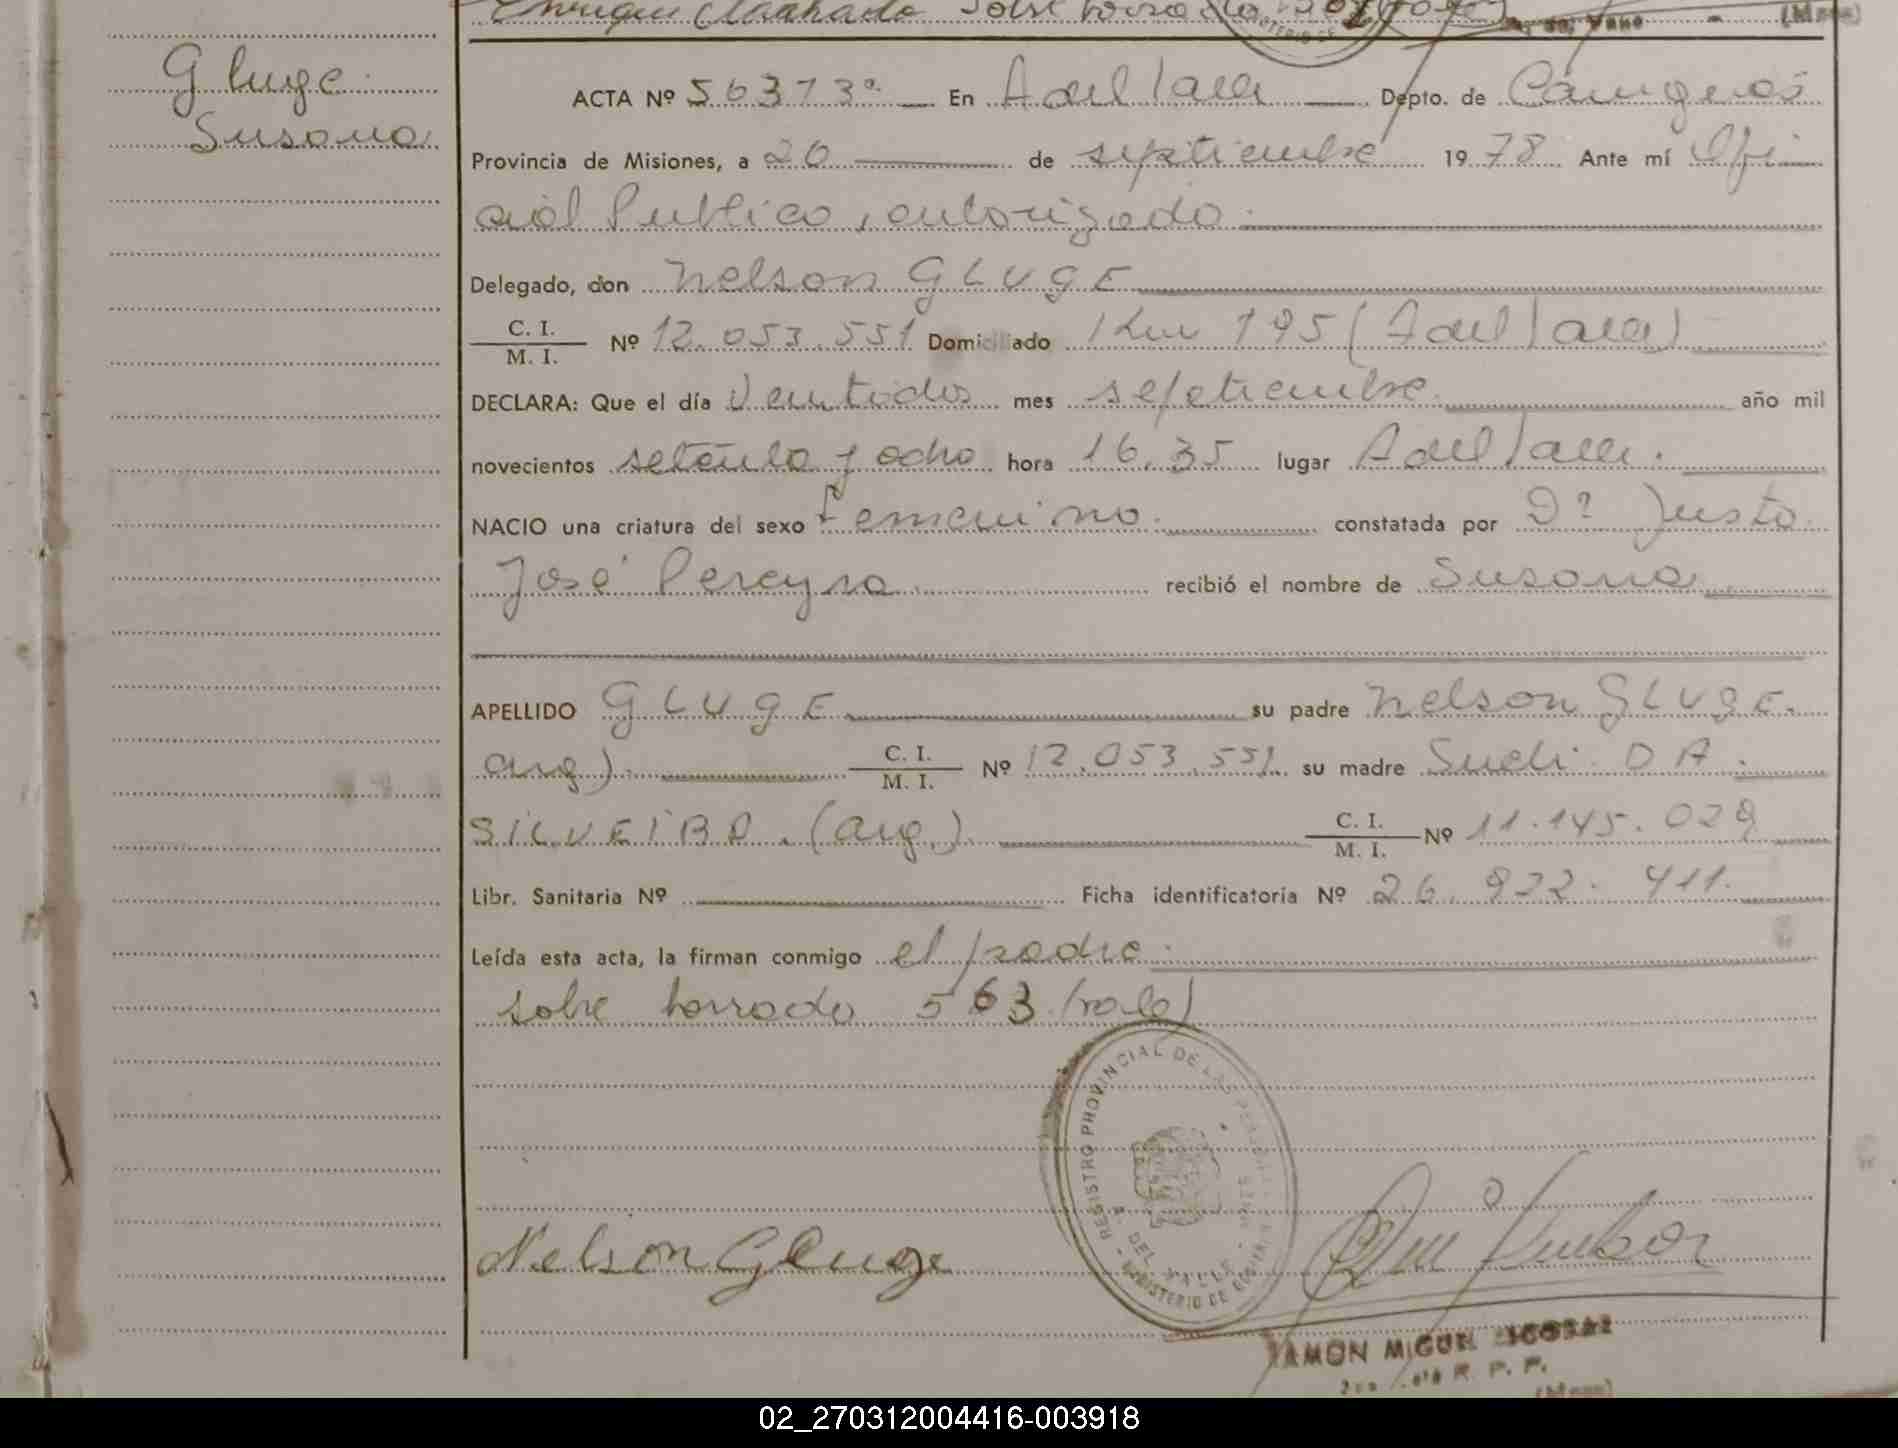 Enrique Machado Sobre borrado
Gluge
Susana
ACTA Nº 56373ª En A del Valle Depto. de Caingúas
Provincia de Misiones, a 26 de septiembre 1978 Ante mí Ofi
cial Publico, autorizado.
Delegado, don Nelson GLUGE
C. I. / M. I. Nº 12.053.551 Domiciliado Km 195 (A del Valle)
DECLARA: Que el día Ventidos mes sepetiembre año mil
novecientos setenta y ocho hora 16.35 lugar A del Valle.
NACIO una criatura del sexo femenino. constatada por Dº Justo
José Pereyra recibió el nombre de Susana
APELLIDO GLUGE su padre Nelson GLUGE.
arg). C. I. / M. I. Nº 12.053.551 su madre Sueli DA
SILVEIRA. (arg.) C. I. / M. I. Nº 11.145.029
Libr. Sanitaria Nº Ficha identificatoria Nº 26.922.411.
Leída esta acta, la firman conmigo el padre.
sobre borrado 563 (vale)
REGISTRO PROVINCIAL DE LAS PERSONAS
A. DEL VALLE
MINISTERIO DE
Nelson Gluge
RAMON MIGUEL
R. P. P.
(Mnes)
02_270312004416-003918